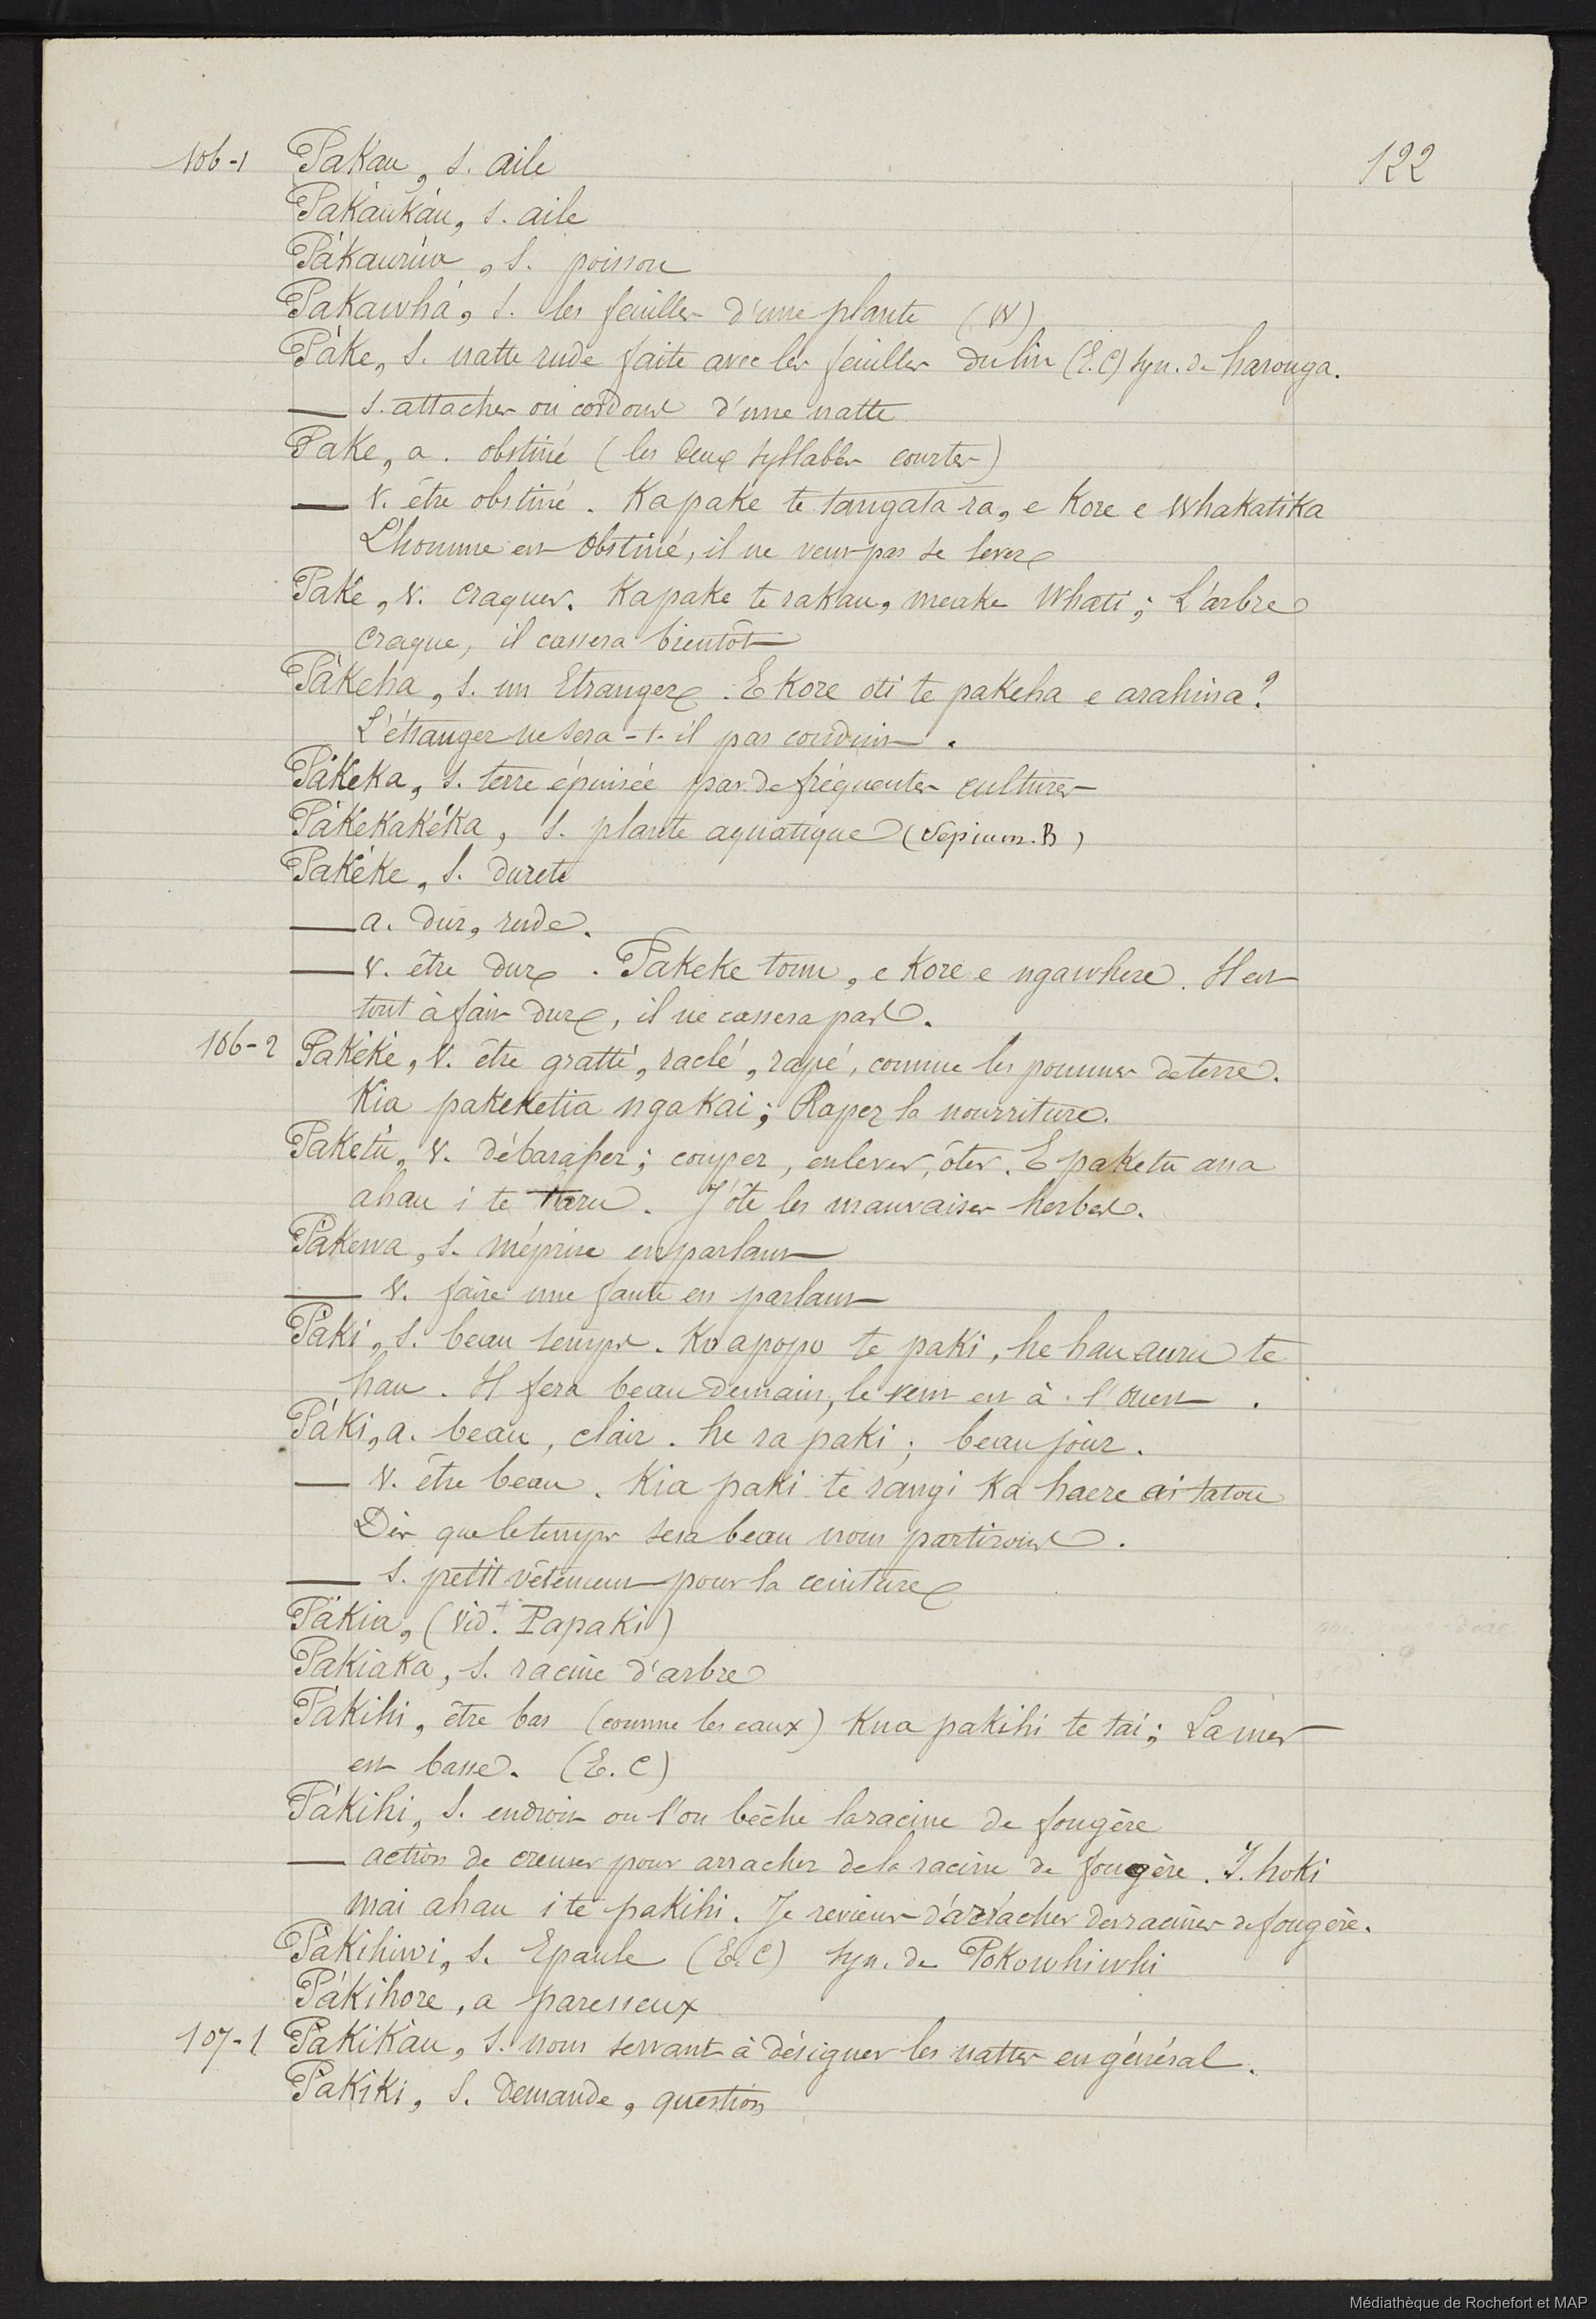 122
106-1 Pakau, s. aile
Pakáukáu, s. aile
Pákaurúa, s. poisson
Pakawhá, s. les feuilles d'une plante (W)
Páke, s. natte rude faite avec les feuilles du lin (E.C) syn. de harouga.
— s. attaches ou cordons d'une natte
Pake, a. obstiné (les deux syllabes courtes)
— v. être obstiné. Ka pake te tangata ra, e Kore e whakatika
L'homme est obstiné, il ne veut pas se lever
Paké, v. craquer. Ka pake te rakau, meake whati; L'arbre
craque, il cassera bientôt
Pákeha, s. un Etranger. E Kore oti te pakeha e arahina?
L'étranger ne sera-t-il pas conduit.
Pákeka, s. terre épuisée par de fréquentes cultures
Pákékakéka, s. plante aquatique (Sepium. B)
Pakéke, s. dureté
— a. dur, rude.
— v. être dur. Pakeke tonu, e Kore e ngawhere. Il est
tout à fait dur, il ne cassera pas.
106-2 Pakéké, v. être gratté, raclé, rapé, comme les pommes de terre.
Kia pakeketia nga Kai; Rapez la nourriture.
Paketú, v. débarasser; couper, enlever, ôter. E paketu ana
ahau i te taru. J'ôte les mauvaises herbes.
Pákewa, s. méprise en parlant
— v. faire une faute en parlant
Páki, s. beau temps. Ko apopo te paki, he hauauru te
hau. Il fera beau demain, le vent est à l'ouest.
Páki, a. beau, clair. he ra paki; beau jour.
— v. être beau. Kia paki te rangi Ka haere ai tatou
Dès que le temps sera beau nous partirons.
— s. petit vêtement pour la ceinture
Pákia, (vid. + Papaki)
Pakiáka, s. racine d'arbre
Pákihi, être bas (comme les eaux) Kua pakihi te tai; La mer
est basse. (E.C)
Pákihi, s. endroit ou l'on bêche la racine de fougère
— action de creuser pour arracher de la racine de fougère. I hoki
mai ahau i te pakihi. Je reviens d'arracher des racines de fougère.
Pákihiwi, s. Epaule (E.C) syn. de Pokowhiwhi
Pákihore, a paresseux
107-1 Pákikáu, s. nom servant à désigner les nattes en général.
Pakiki, s. Demande, question
Médiathèque de Rochefort et MAP